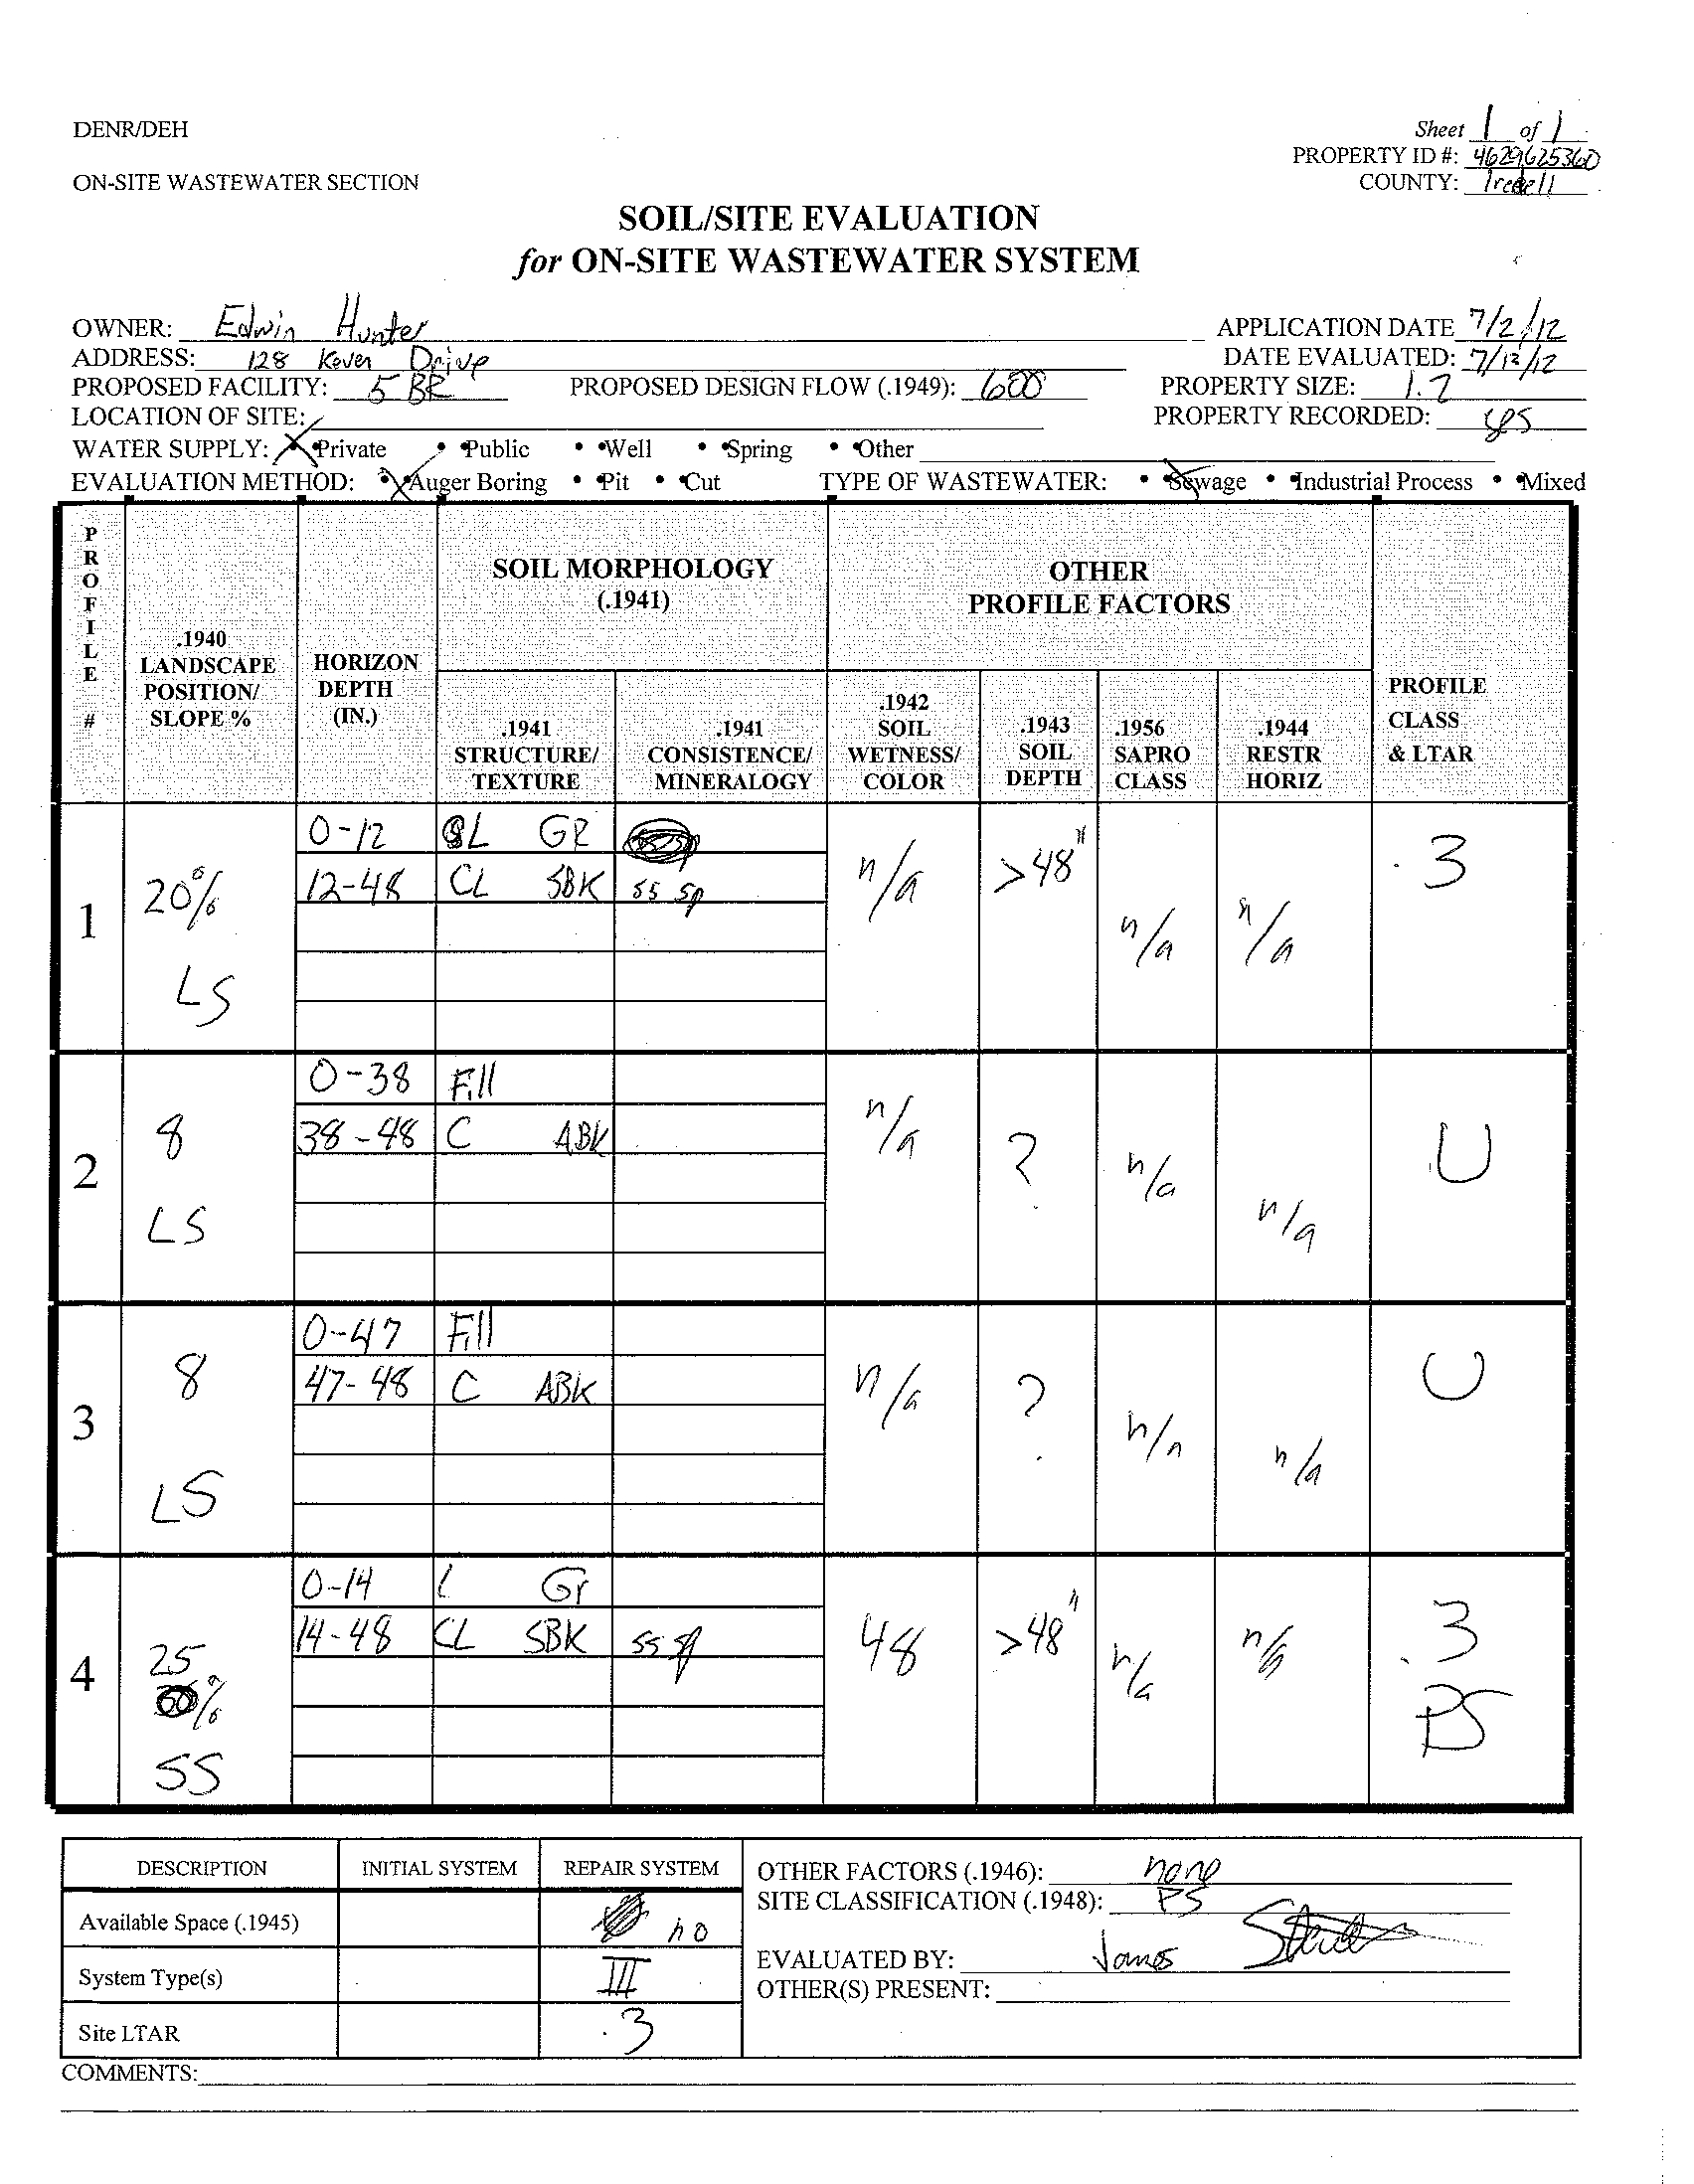 DENR/DEH
Sheet 1 of 1
PROPERTY ID #: 4629625360
ON-SITE WASTEWATER SECTION
COUNTY: Iredell
SOIL/SITE EVALUATION
for ON-SITE WASTEWATER SYSTEM
OWNER: Edwin Hunter
APPLICATION DATE 7/2/12
ADDRESS: 128 Koven Drive
DATE EVALUATED: 7/12/12
PROPOSED FACILITY: 5 BR PROPOSED DESIGN FLOW (.1949): 600 PROPERTY SIZE: 1.7
LOCATION OF SITE: PROPERTY RECORDED: yes
WATER SUPPLY: X Private • Public • Well • Spring • Other
EVALUATION METHOD: X Auger Boring • Pit • Cut TYPE OF WASTEWATER: • X Sewage • Industrial Process • Mixed
PROFILE #
.1940 LANDSCAPE POSITION/ SLOPE %
HORIZON DEPTH (IN.)
SOIL MORPHOLOGY (.1941)
.1941 STRUCTURE/ TEXTURE
.1941 CONSISTENCE/ MINERALOGY
OTHER PROFILE FACTORS
.1942 SOIL WETNESS/ COLOR
.1943 SOIL DEPTH
.1956 SAPRO CLASS
.1944 RESTR HORIZ
PROFILE CLASS & LTAR
1 20% LS
0-12 SL GR
12-48 CL SBK ss sp
n/a >48" n/a n/a .3
2 8 LS
0-38 Fill
38-48 C ABK
n/a ? n/a n/a U
3 8 LS
0-47 Fill
47-48 C ABK
n/a ? n/a n/a U
4 25 % SS
0-14 L Gr
14-48 CL SBK ss sp
48 >48" n/a n/a .3 PS
DESCRIPTION INITIAL SYSTEM REPAIR SYSTEM
Available Space (.1945) no
System Type(s) III
Site LTAR .3
OTHER FACTORS (.1946): none
SITE CLASSIFICATION (.1948): PS
EVALUATED BY: James
OTHER(S) PRESENT:
COMMENTS: